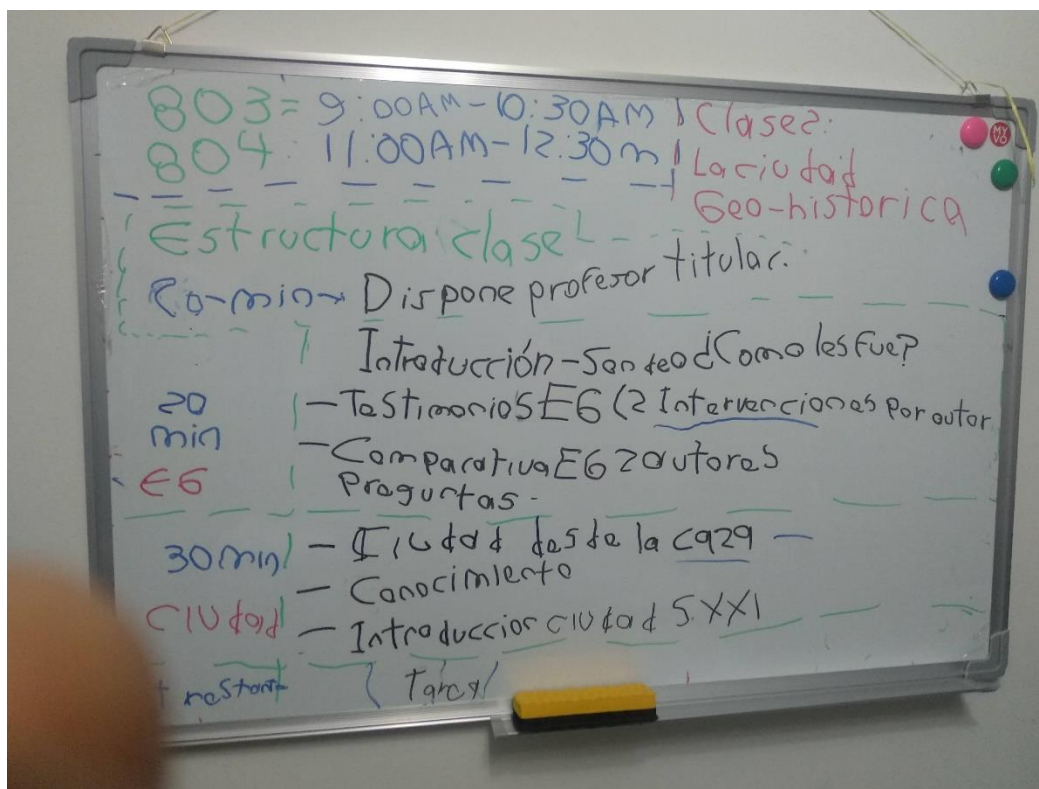 803= 9:00AM-10:30AM
804: 11:00AM-12:30m
Clase2:
La ciudad
Geo-historica
Estructura clase
Dispone profesor titular.
Introducción-Sondeo ¿Como les fue?
20
min
E6
-Testimonios E6 (2 Intervenciones por autor
-Comparativa E6 2 autores
Preguntas.
30min
Ciudad
- Ciudad desde la
- Conocimiento
- Introduccion ciudad S.XXI
Tarea
MY
VO